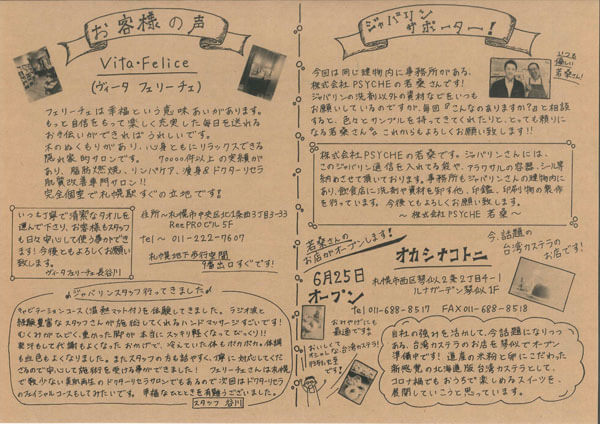 お客様の声
Vita・Felice
(ヴィータ フェリーチェ)
フェリーチェは幸福という意味あいがあります。
もっと自信をもって楽しく充実した毎日を送れる
お手伝いができればうれしいです。
木のぬくもりがあり、心身ともにリラックスできる
隠れ家的サロンです。70000件以上の実績が
あり、脂肪燃焼、リンパケア、痩身&ドクターリセラ
肌質改善専門サロン!!
完全個室で札幌駅すぐの立地です!
いつも丁寧で清潔なタオルを
選んで下さり、お客様もスタッフ
も日々安心して使う事ができて
います!今後ともよろしくお願い
致します。
ヴィータフェリーチェ長谷川
住所~札幌市中央区北1条西3丁目3-33
ReePROビル5F
tel~ 011-222-9607
札幌地下歩行空間
9番出口すぐです!
ジャバリンスタッフ行ってきました
キャビテーションコース(温熱マット付)を体験してきました。ラジオ波と
経験豊富なスタッフさんが施術してくれるハンドマッサージすごいです!
むくみがひどく重かった脚が本当にスッキリ軽くなってびっくり!!
発汗もして代謝もよくなったおかげで、冷えていた体もポカポカ。体調
も血色もよくなりました。またスタッフの方も話やすく、丁寧に対応してくだ
さるので安心して施術を受ける事ができました! フェリーチェさんは札幌
で数少ない美肌再生のドクターリセラサロンでもあるので次回はドクターリセラ
のフェイシャルコースもしてみたいです。幸福なひとときを有難うございました。
スタッフ 谷川
ジャバリン
サポーター!
いつも
優しい
若桑さん!
今回は同じ建物内に事務所がある、
株式会社PSYCHEの若桑さんです!
ジャバリンの洗剤以外の資材などをいつも
お願いしているのですが、毎回『こんなのありますか?』と相談
すると、色々とサンプルを持ってきてくれたりと、とっても頼りに
なる若桑さん。これからもよろしくお願い致します!!
株式会社PSYCHEの若桑です。ジャバリンさんには、
このジャバリン通信を入れてる袋や、アクラサムの容器、シール等
納めさせて頂いております。事務所もジャバリンさんの建物内に
あり、飲食店に洗剤や資材を卸す他、印鑑、印刷物の製作
を行っています。今後ともよろしくお願い致します。
~ 株式会社PSYCHE 若桑 ~
若桑さんの
お店がオープンします!
6月25日
オープン
オカシナコトニ
今、話題の
台湾カステラの
お店です!
札幌市西区琴似2条2丁目4-1
ルナガーデン琴似1F
Tel 011-688-8517 FAX 011-688-8518
おみやげにも
最適です。
おいしくて
オシャレな台湾カステラ!
自社の強みを活かして、今話題になりつつ
ある、台湾カステラのお店を琴似でオープン
準備中です! 道産の米粉と卵にこだわった
新感覚の北海道版台湾カステラとして、
コロナ禍でもおうちで楽しめるスイーツを、
展開していこうと思っています。